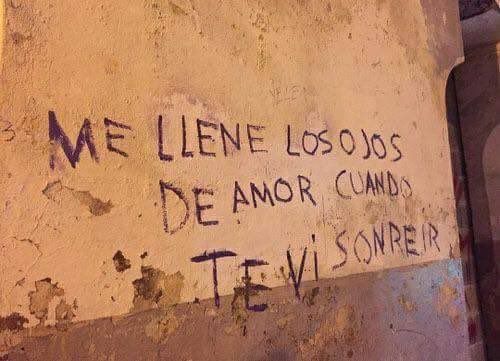 ME LLENE LOS OJOS
DE AMOR CUANDO
TE VI SONREIR